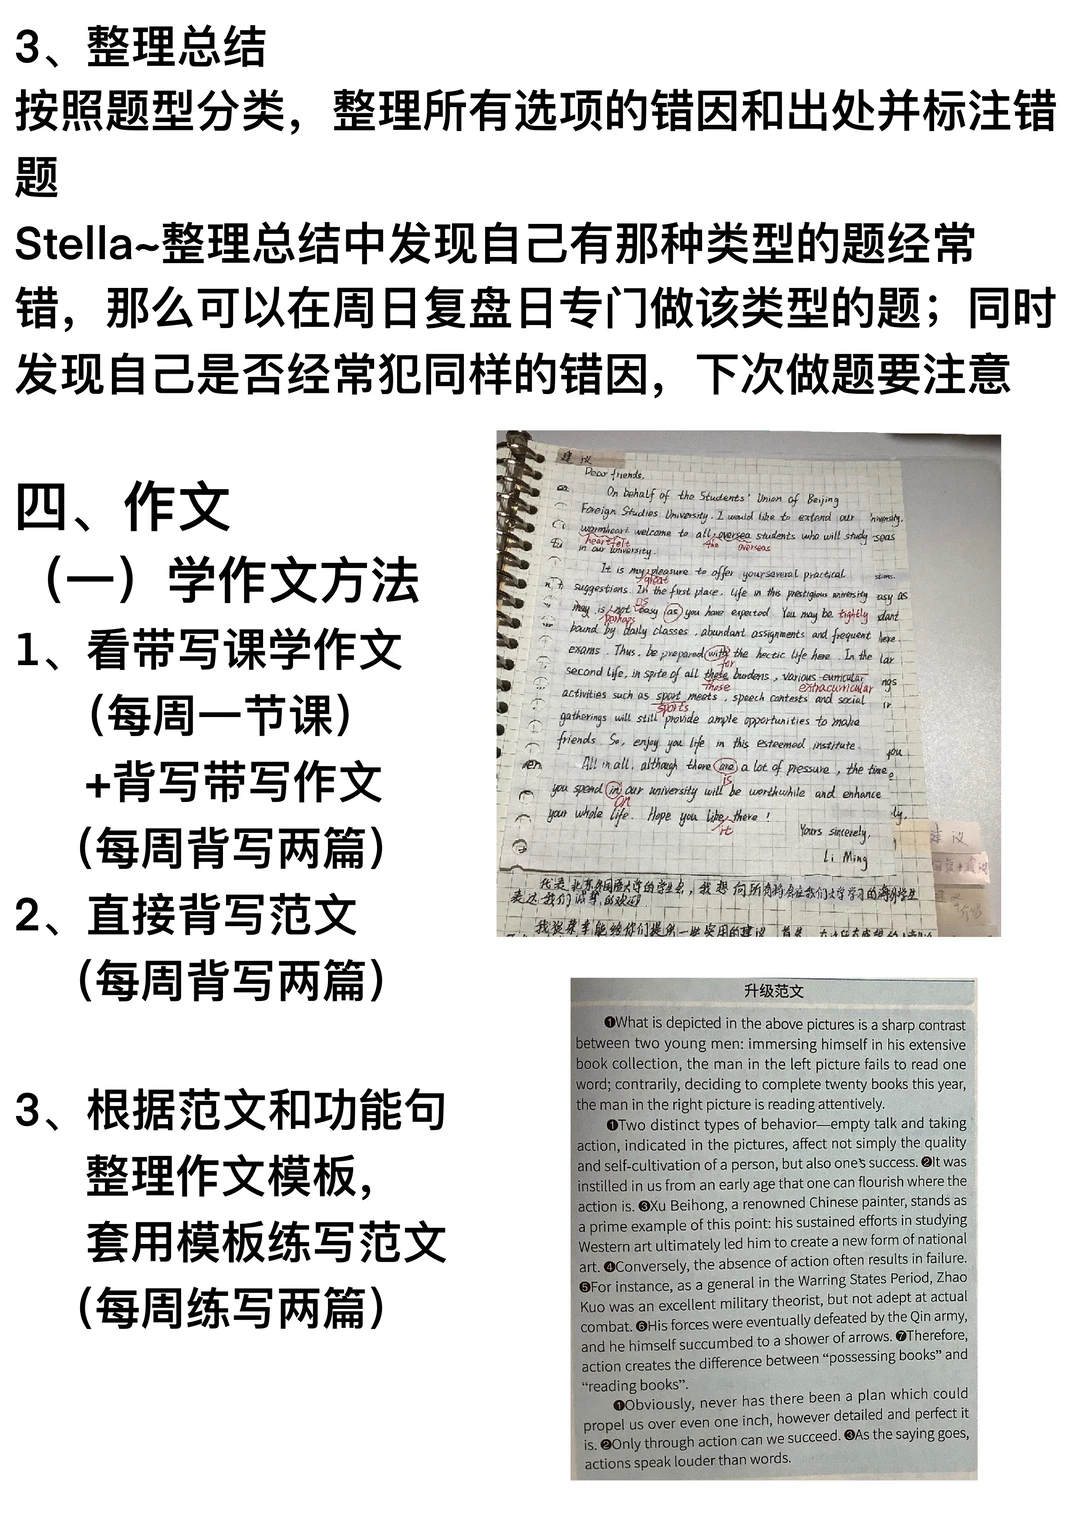 3、整理总结
按照题型分类，整理所有选项的错因和出处并标注错
题
Stella~整理总结中发现自己有那种类型的题经常
错，那么可以在周日复盘日专门做该类型的题；同时
发现自己是否经常犯同样的错因，下次做题要注意
四、作文
（一）学作文方法
1、看带写课学作文
（每周一节课）
+背写带写作文
（每周背写两篇）
2、直接背写范文
（每周背写两篇）
3、根据范文和功能句
整理作文模板，
套用模板练写范文
（每周练写两篇）
建议
Dear friends,
On behalf of the Students' Union of Beijing
Foreign Studies University. I would like to extend our
warmheart welcome to all oversea students who will study
heartfelt the overseas
in our university.
It is my pleasure to offer your several practical
great
suggestions. In the first place, life in this prestigious university
may is not easy as you have expected. You may be tightly
perhaps as
bound by daily classes, abundant assignments and frequent
exams. Thus, be prepared with the hectic life here. In the
for
second life, in spite of all these burdens, various curricular
those extracurricular
activities such as sport meets, speech contests and social
sports
gatherings will still provide ample opportunities to make
friends. So, enjoy you life in this esteemed institute.
All in all, although there are a lot of pressure, the time
is
you spend in our university will be worthwhile and enhance
on
your whole life. Hope you like there!
it
Yours sincerely,
Li Ming
建议
我是北京外国语大学的学生会，我想向所有将会在我们大学学习的海外学生
表达我们诚挚的欢迎
我很荣幸能给你们提供一些实用的建议
升级范文
❶What is depicted in the above pictures is a sharp contrast
between two young men: immersing himself in his extensive
book collection, the man in the left picture fails to read one
word; contrarily, deciding to complete twenty books this year,
the man in the right picture is reading attentively.
❶Two distinct types of behavior—empty talk and taking
action, indicated in the pictures, affect not simply the quality
and self-cultivation of a person, but also one's success. ❷It was
instilled in us from an early age that one can flourish where the
action is. ❸Xu Beihong, a renowned Chinese painter, stands as
a prime example of this point: his sustained efforts in studying
Western art ultimately led him to create a new form of national
art. ❹Conversely, the absence of action often results in failure.
❺For instance, as a general in the Warring States Period, Zhao
Kuo was an excellent military theorist, but not adept at actual
combat. ❻His forces were eventually defeated by the Qin army,
and he himself succumbed to a shower of arrows. ❼Therefore,
action creates the difference between “possessing books” and
“reading books”.
❶Obviously, never has there been a plan which could
propel us over even one inch, however detailed and perfect it
is. ❷Only through action can we succeed. ❸As the saying goes,
actions speak louder than words.